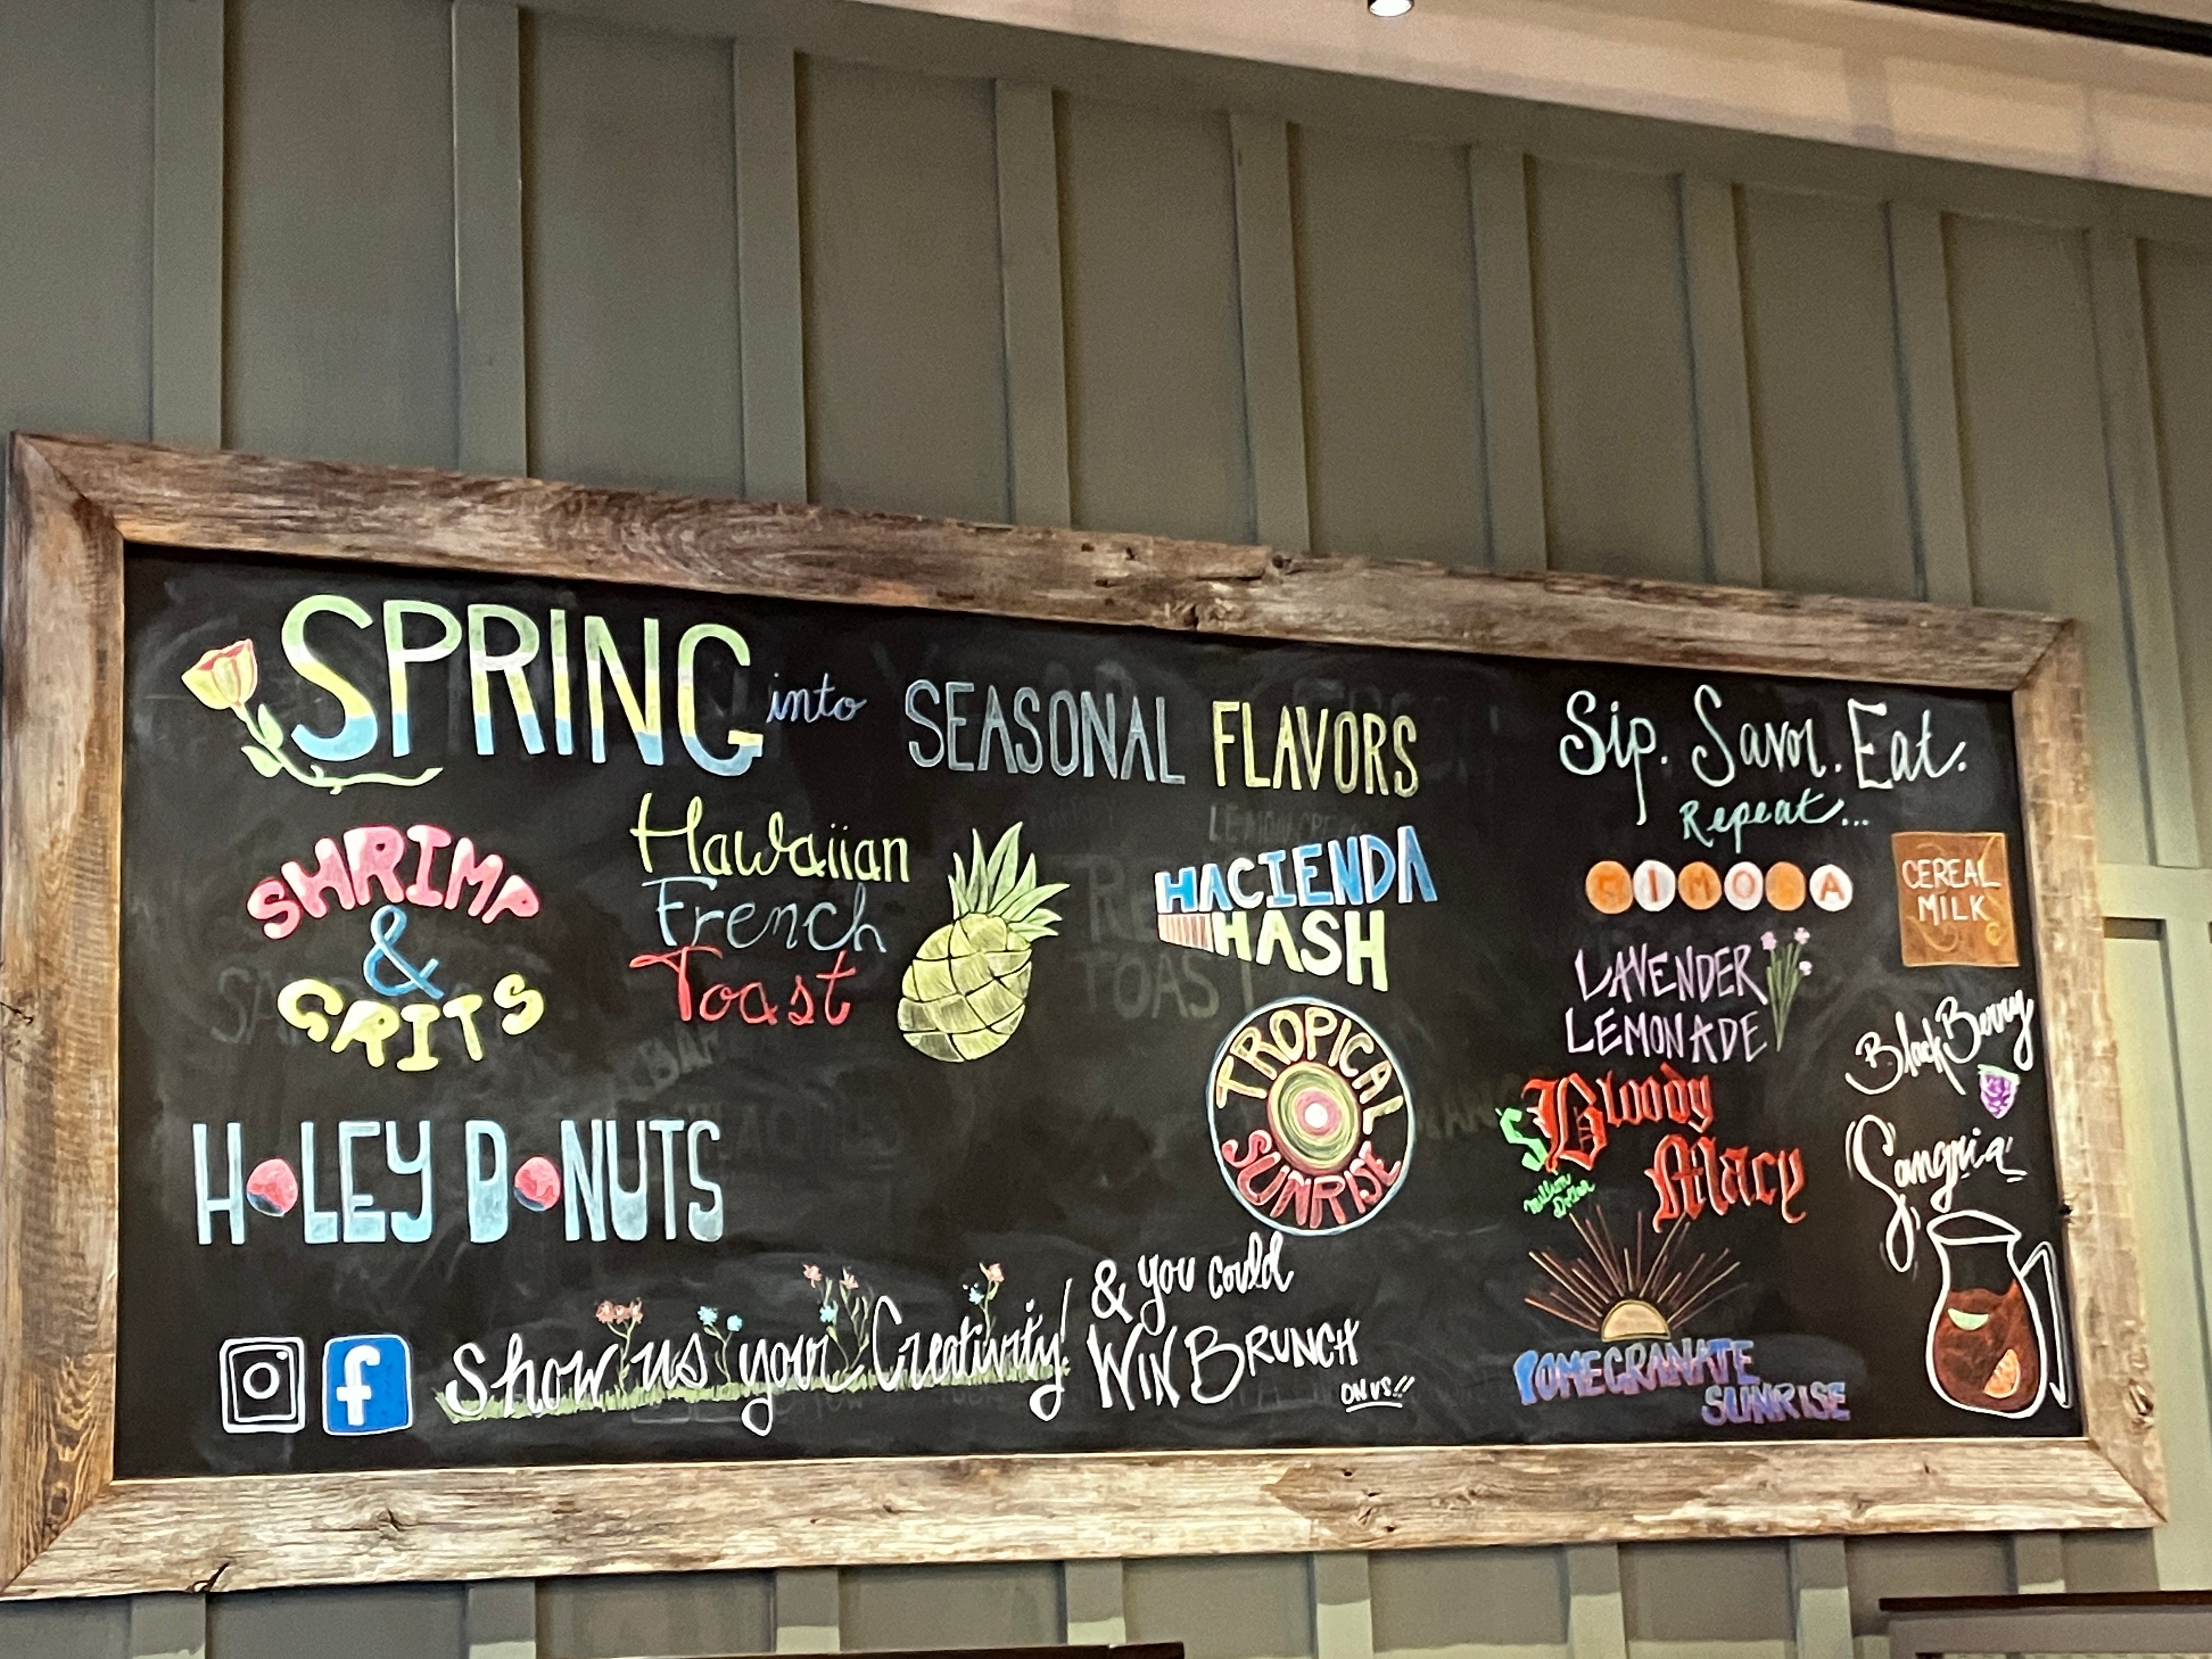 SPRING into SEASONAL FLAVORS
SHRIMP
&
GRITS
Hawaiian
French
Toast
HACIENDA
HASH
TROPICAL
SUNRISE
HOLEY DONUTS
f
Show us your Creativity!
& you could
WIN BRUNCH
ON US!!
Sip. Savor. Eat.
Repeat...
MIMOSA
CEREAL
MILK
LAVENDER
LEMONADE
BlackBerry
Sangria
$
Million
Dollar
Bloody
Macy
POMEGRANATE
SUNRISE